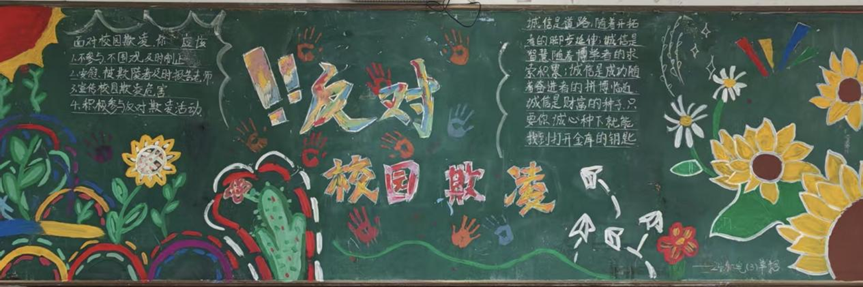 面对校园欺凌,你应该
1.不参与不围观及时制止
2.安慰被欺凌者及时报告老师
3.宣传校园欺凌危害
4.积极参与反对欺凌活动
!!反对
校园欺凌
诚信是道路,随着开拓
者的脚步延伸;诚信是
智慧,随着博学者的求
索积累;诚信是成功,随
着奋进者的拼搏临近
诚信是财富的种子,只
要你诚心种下,就能
找到打开金库的钥匙